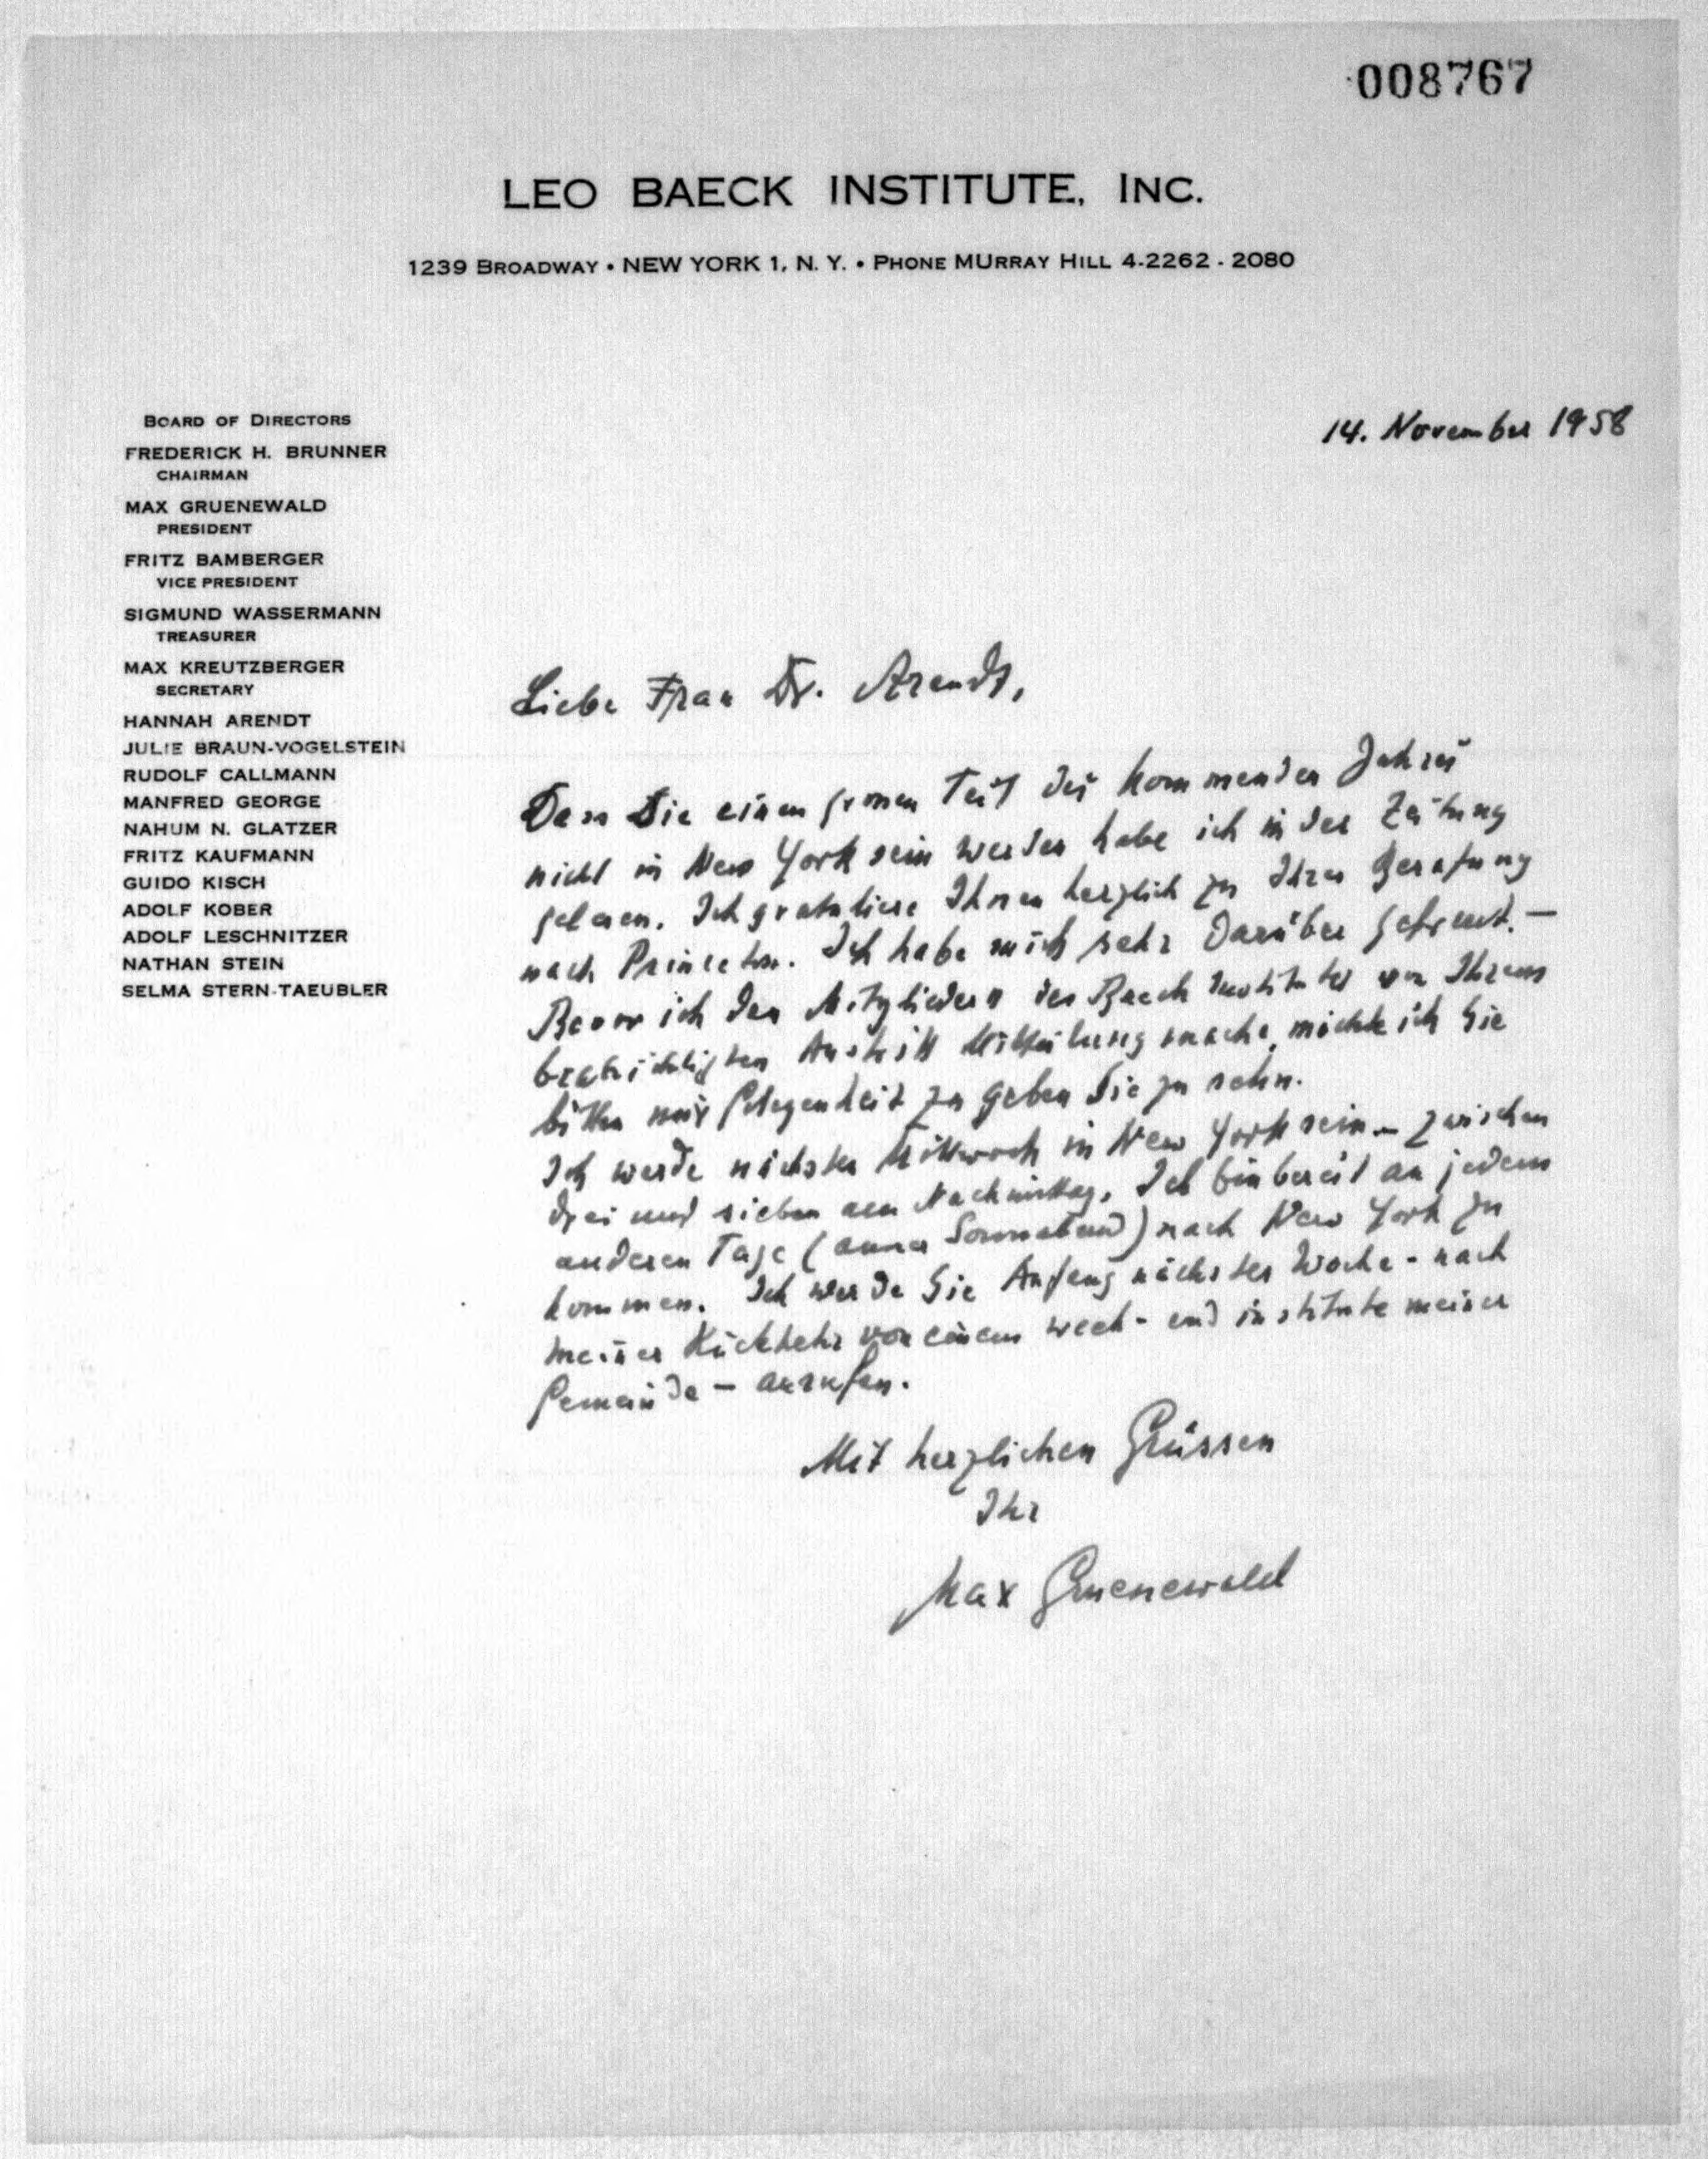 008767
LEO BAECK INSTITUTE, INC.
1239 BROADWAY • NEW YORK 1, N. Y. • PHONE MURRAY HILL 4-2262 - 2080
14. November 1958
BOARD OF DIRECTORS
FREDERICK H. BRUNNER
CHAIRMAN
MAX GRUENEWALD
PRESIDENT
FRITZ BAMBERGER
VICE PRESIDENT
SIGMUND WASSERMANN
TREASURER
MAX KREUTZBERGER
SECRETARY
HANNAH ARENDT
JULIE BRAUN-VOGELSTEIN
RUDOLF CALLMANN
MANFRED GEORGE
NAHUM N. GLATZER
FRITZ KAUFMANN
GUIDO KISCH
ADOLF KOBER
ADOLF LESCHNITZER
NATHAN STEIN
SELMA STERN-TAEUBLER
Liebe Frau Dr. Arendt,
Dass Sie einen grossen Teil des kommenden Jahres
nicht in New York sein werden habe ich in der Zeitung
gelesen. Ich gratuliere Ihnen herzlich zu Ihrer Berufung
nach Princeton. Ich habe mich sehr darüber gefreut. —
Bevor ich den Mitgliedern des Baeck Institutes von Ihrem
beabsichtigten Austritt Mitteilung mache, möchte ich Sie
bitten mir Gelegenheit zu geben Sie zu sehn.
Ich werde nächsten Mittwoch in New York sein – zwischen
drei und sieben am Nachmittag. Ich bin bereit an jedem
anderen Tage (ausser Sonnabend) nach New York zu
kommen. Ich werde Sie Anfang nächster Woche - nach
meiner Rückkehr von einem week-end institute meiner
Gemeinde — anrufen.
Mit herzlichen Grüssen
Ihr
Max Gruenewald